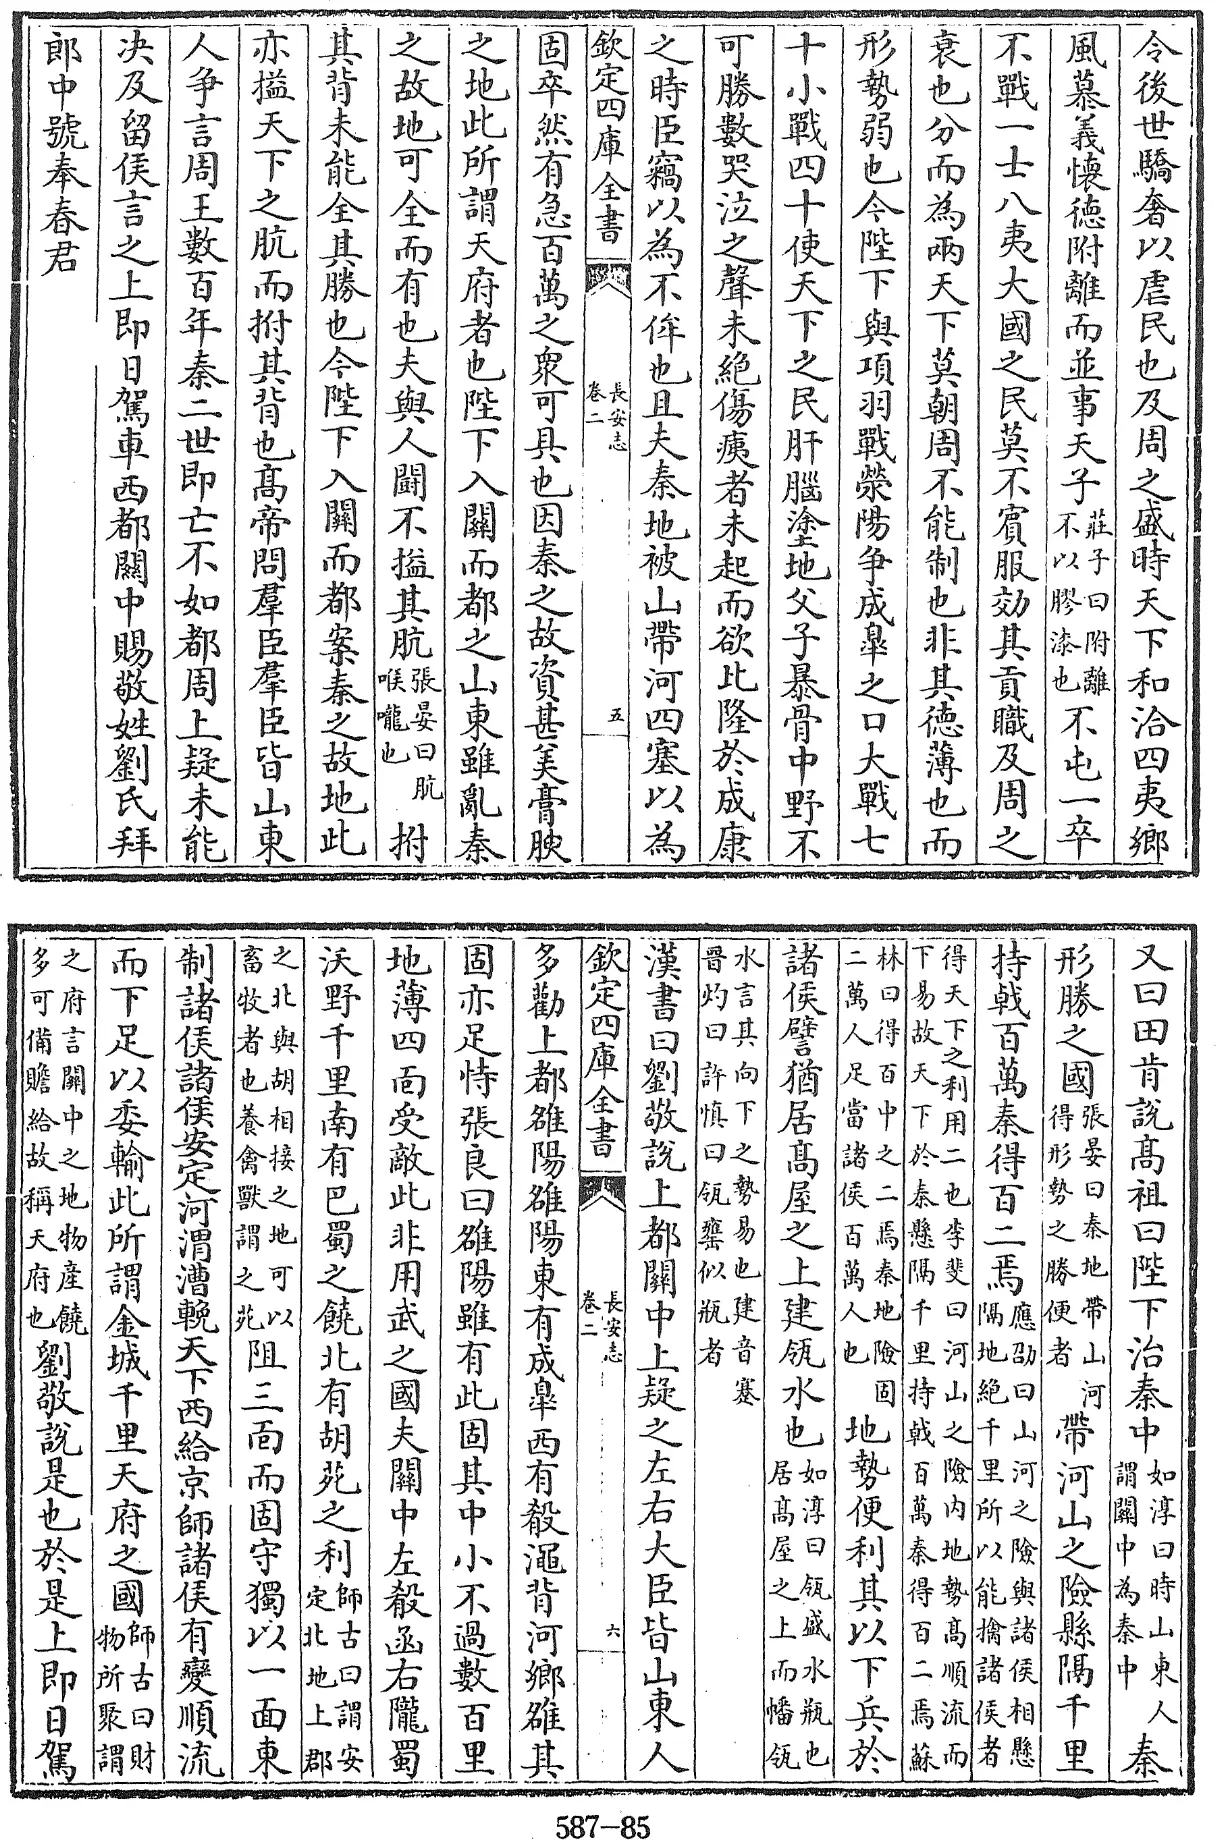 令後世驕奢以虐民也及周之盛時天下和洽四夷鄉
風慕義懐德附離而並事天子莊子曰附離不以膠漆也不屯一卒
不戰一士八夷大國之民莫不賓服効其貢職及周之
衰也分而為兩天下莫朝周不能制也非其德薄也而
形勢弱也今陛下與項羽戰滎陽爭成臯之口大戰七
十小戰四十使天下之民肝腦塗地父子暴骨中野不
可勝數哭泣之聲未絶傷痍者未起而欲比隆於成康
之時臣竊以為不侔也且夫秦地被山帶河四塞以為
欽定四庫全書 長安志卷二 五
固卒然有急百萬之衆可具也因秦之故資甚美膏腴
之地此所謂天府者也陛下入關而都之山東雖亂秦
之故地可全而有也夫與人鬭不搤其肮張晏曰肮喉嚨也拊
其背未能全其勝也今陛下入關而都案秦之故地此
亦搤天下之肮而拊其背也髙帝問羣臣羣臣皆山東
人爭言周王數百年秦二世即亡不如都周上疑未能
决及留侯言之上即日駕車西都關中賜敬姓劉氏拜
郎中號奉春君
又曰田肯說髙祖曰陛下治秦中如淳曰時山東人謂關中為秦中秦
形勝之國張晏曰秦地帶山河得形勢之勝便者帶河山之險縣隔千里
持戟百萬秦得百二焉應劭曰山河之險與諸侯相懸隔地絶千里所以能擒諸侯者
得天下之利用二也李斐曰河山之險内地勢髙順流而下易故天下於秦懸隔千里持戟百萬秦得百二焉蘇
林曰得百中之二焉秦地險固二萬人足當諸侯百萬人也地勢便利其以下兵於
諸侯譬猶居髙屋之上建瓴水也如淳曰瓴盛水瓶也居髙屋之上而幡瓴
水言其向下之勢易也建音蹇晋灼曰許慎曰瓴罋似瓶者
漢書曰劉敬說上都關中上疑之左右大臣皆山東人
欽定四庫全書 長安志卷二 六
多勸上都雒陽雒陽東有成臯西有殽澠背河鄉雒其
固亦足恃張良曰雒陽雖有此固其中小不過數百里
地薄四面受敵此非用武之國夫關中左殽函右隴蜀
沃野千里南有巴蜀之饒北有胡苑之利師古曰謂安定北地上郡
之北與胡相接之地可以畜牧者也養禽獸謂之苑阻三面而固守獨以一面東
制諸侯諸侯安定河渭漕輓天下西給京師諸侯有變順流
而下足以委輸此所謂金城千里天府之國師古曰財物所聚謂
之府言關中之地物産饒多可備贍給故稱天府也劉敬說是也於是上即日駕
587-85